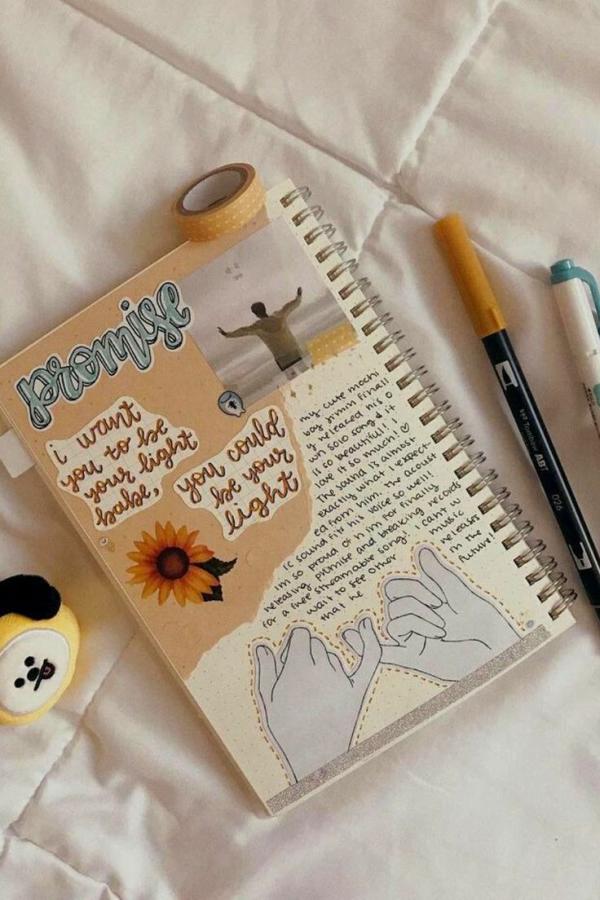 promise
i want
you to be
your light
babe,
you could
be your
light
my cute mochi
boy jimin finall
y released his o
wn solo song & it
is so beautiful! i
love it so much! ♡
The sound is almost
exactly what i expect
ed from him. the acoust
ic sound fits his voice so well!
im so proud of him for finally
releasing promise and breaking records
for a free streamable song! i cant w
ait to see other music
that he releases
in the
future!
Tombow ABT
026